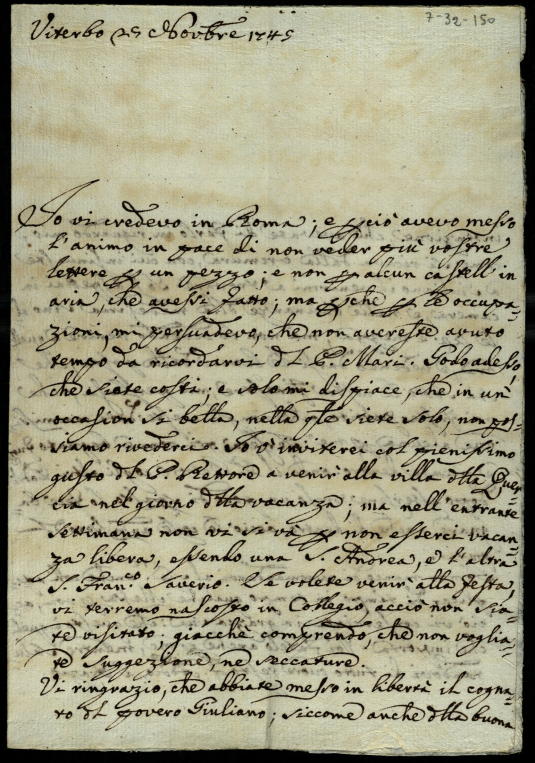 7-32-150
Viterbo 25 Novbre 1745
Io vi credevo in Roma; e pciò avevo messo
l'animo in pace di non veder più vostre
lettere p un pezzo; e non p alcun castell' in
aria, che avessi fatto; ma pche p le occupa-
zioni, mi persuadevo, che non avereste avuto
tempo da ricordarvi dl P. Mari. Godo adesso,
che siete costì; e solo mi dispiace, che in un'
occasion sì bella, nella qle siete solo, non pos-
siamo rivederci. Io v'inviterei col pienissimo
gusto dl P. Rettore a venir alla villa dlla Quer-
cia nel giorno dlla vacanza; ma nell' entrante
settimana non vi si và p non esserci vacan-
za libera, essendo una S. Andrea, e l'altra
S. Franco Saverio. Se volete venir alla festa,
vi terremo nascosto in Collegio, acciò non sia-
te visitato; giacchè comprendo, che non voglia-
te suggezione, nè seccature.
Vi ringrazio, che abbiate messo in libertà il cogna-
to dl povero Giuliano; siccome anche dlla buona